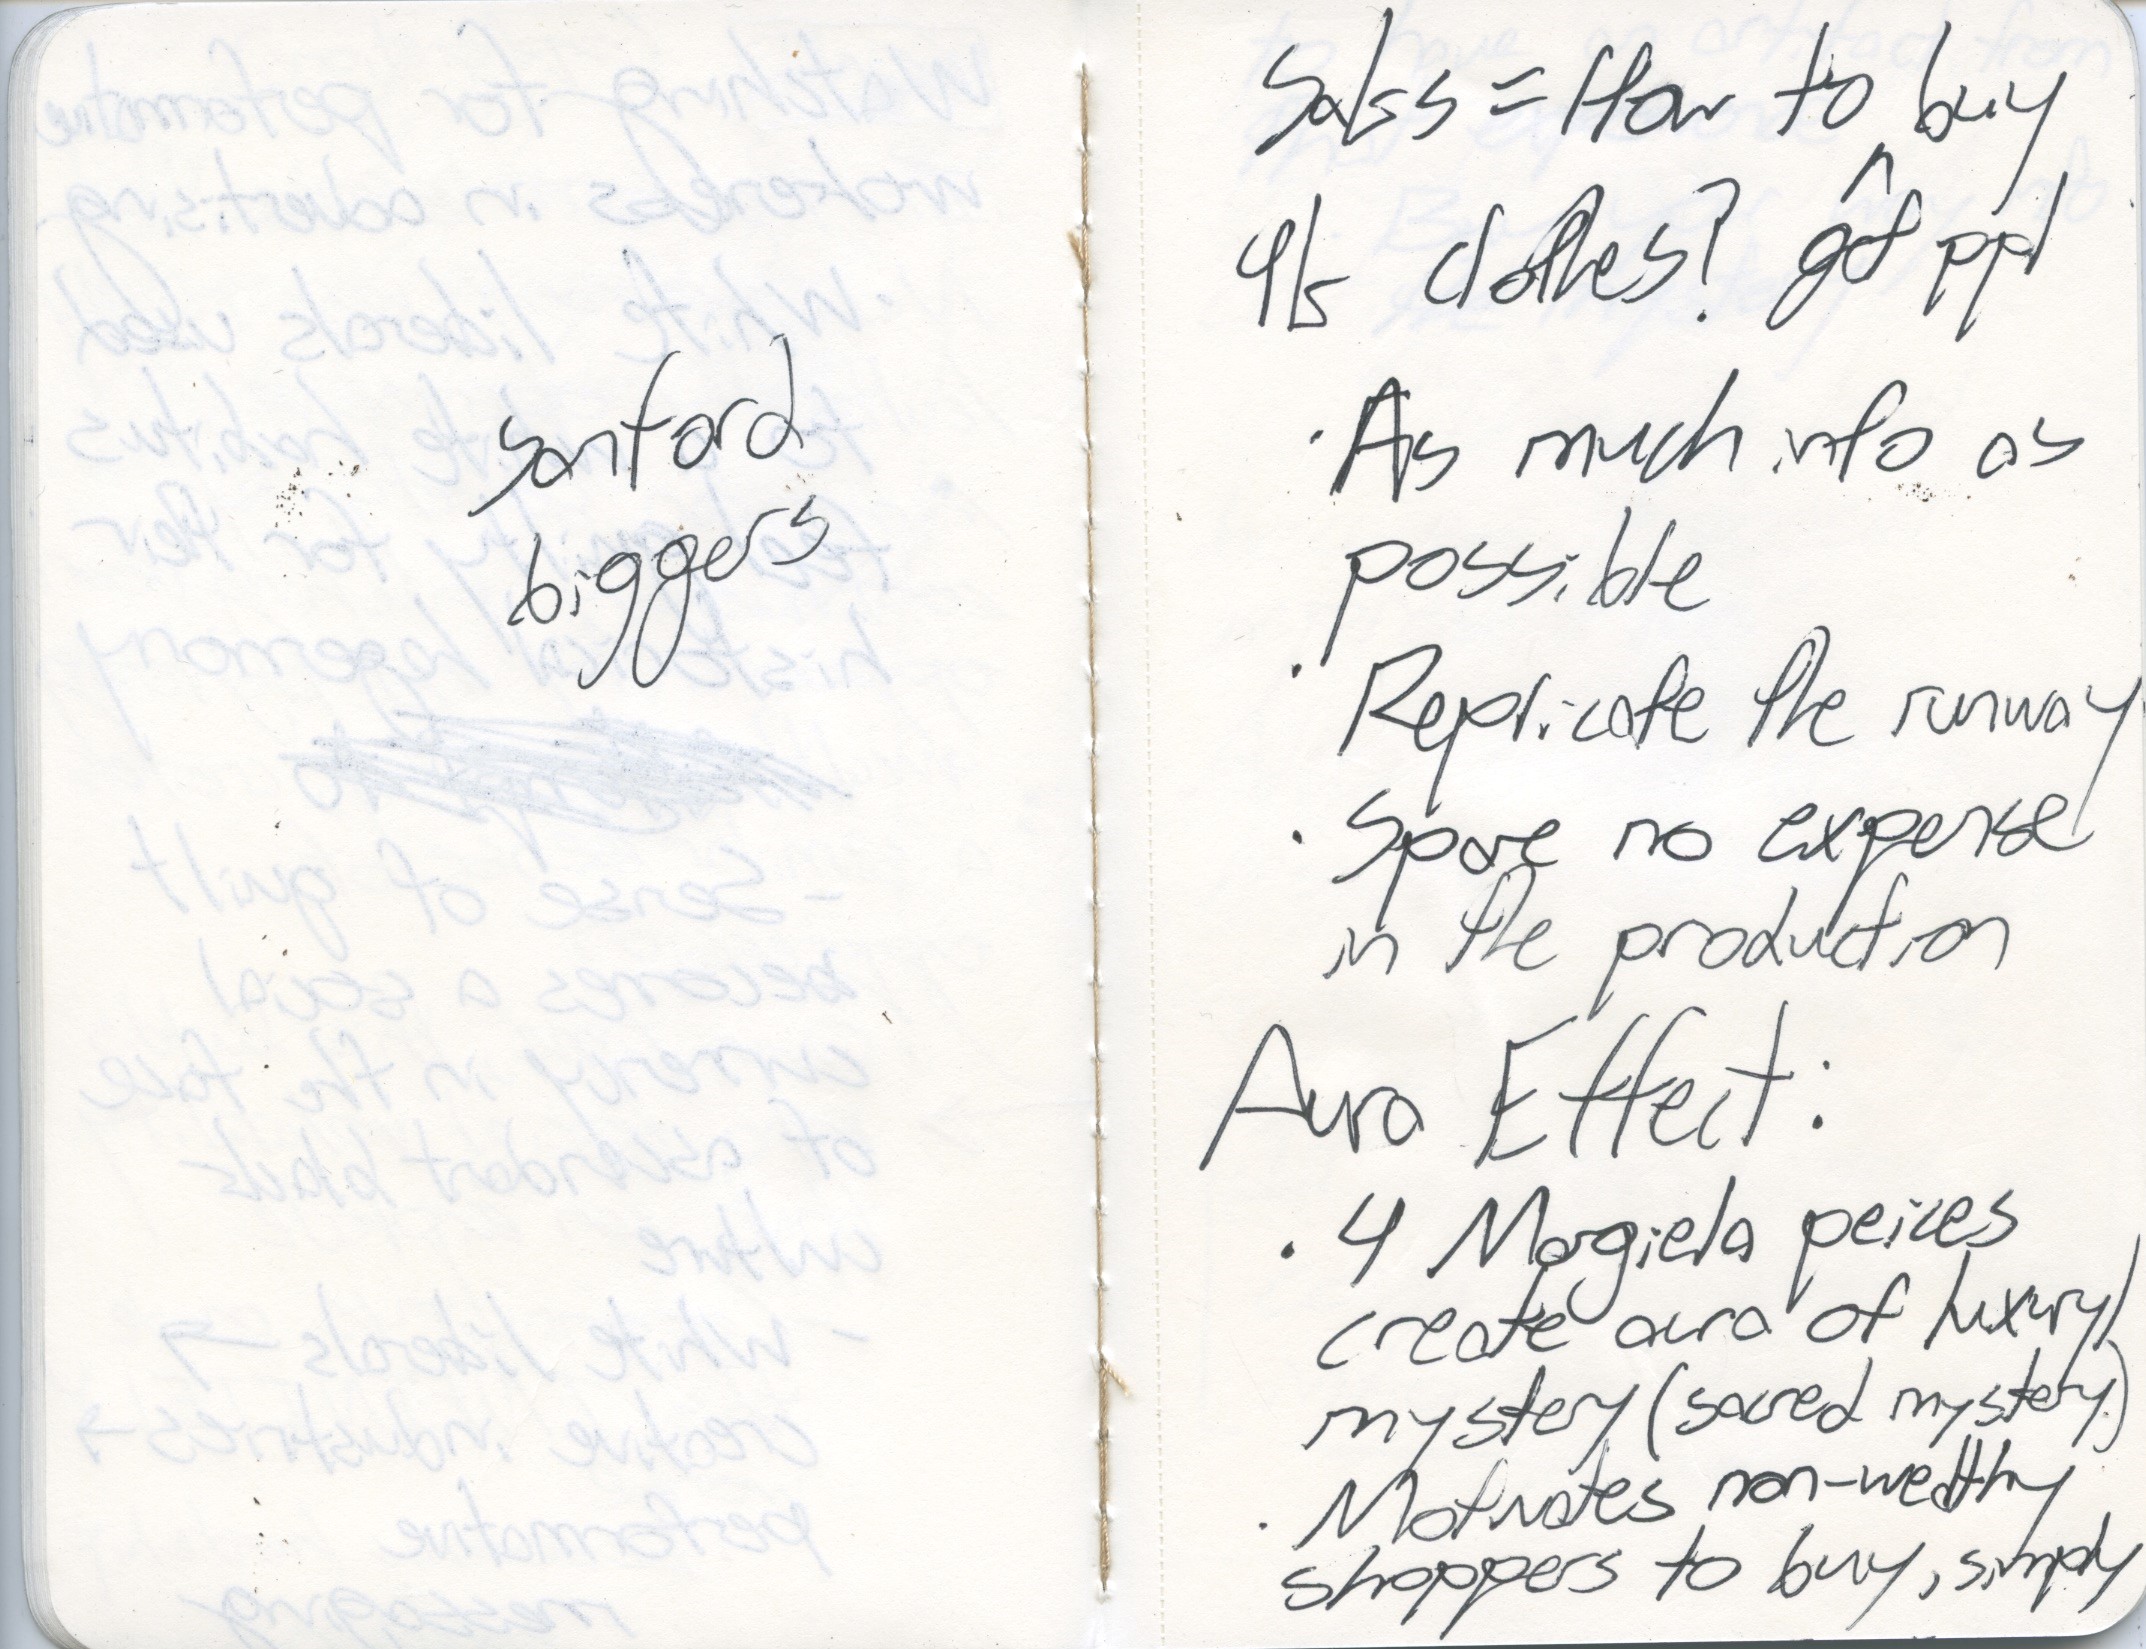 Sanford
biggers
Sales = How to buy
^ get ppl
4/5 clothes?
· As much info as
possible
· Replicate the runway
· Spare no expense
in the production
Aura Effect:
· 4 Margiela peices
create aura of luxury/
mystery (sacred mystery)
· Motivates non-wealthy
shoppers to buy, simply